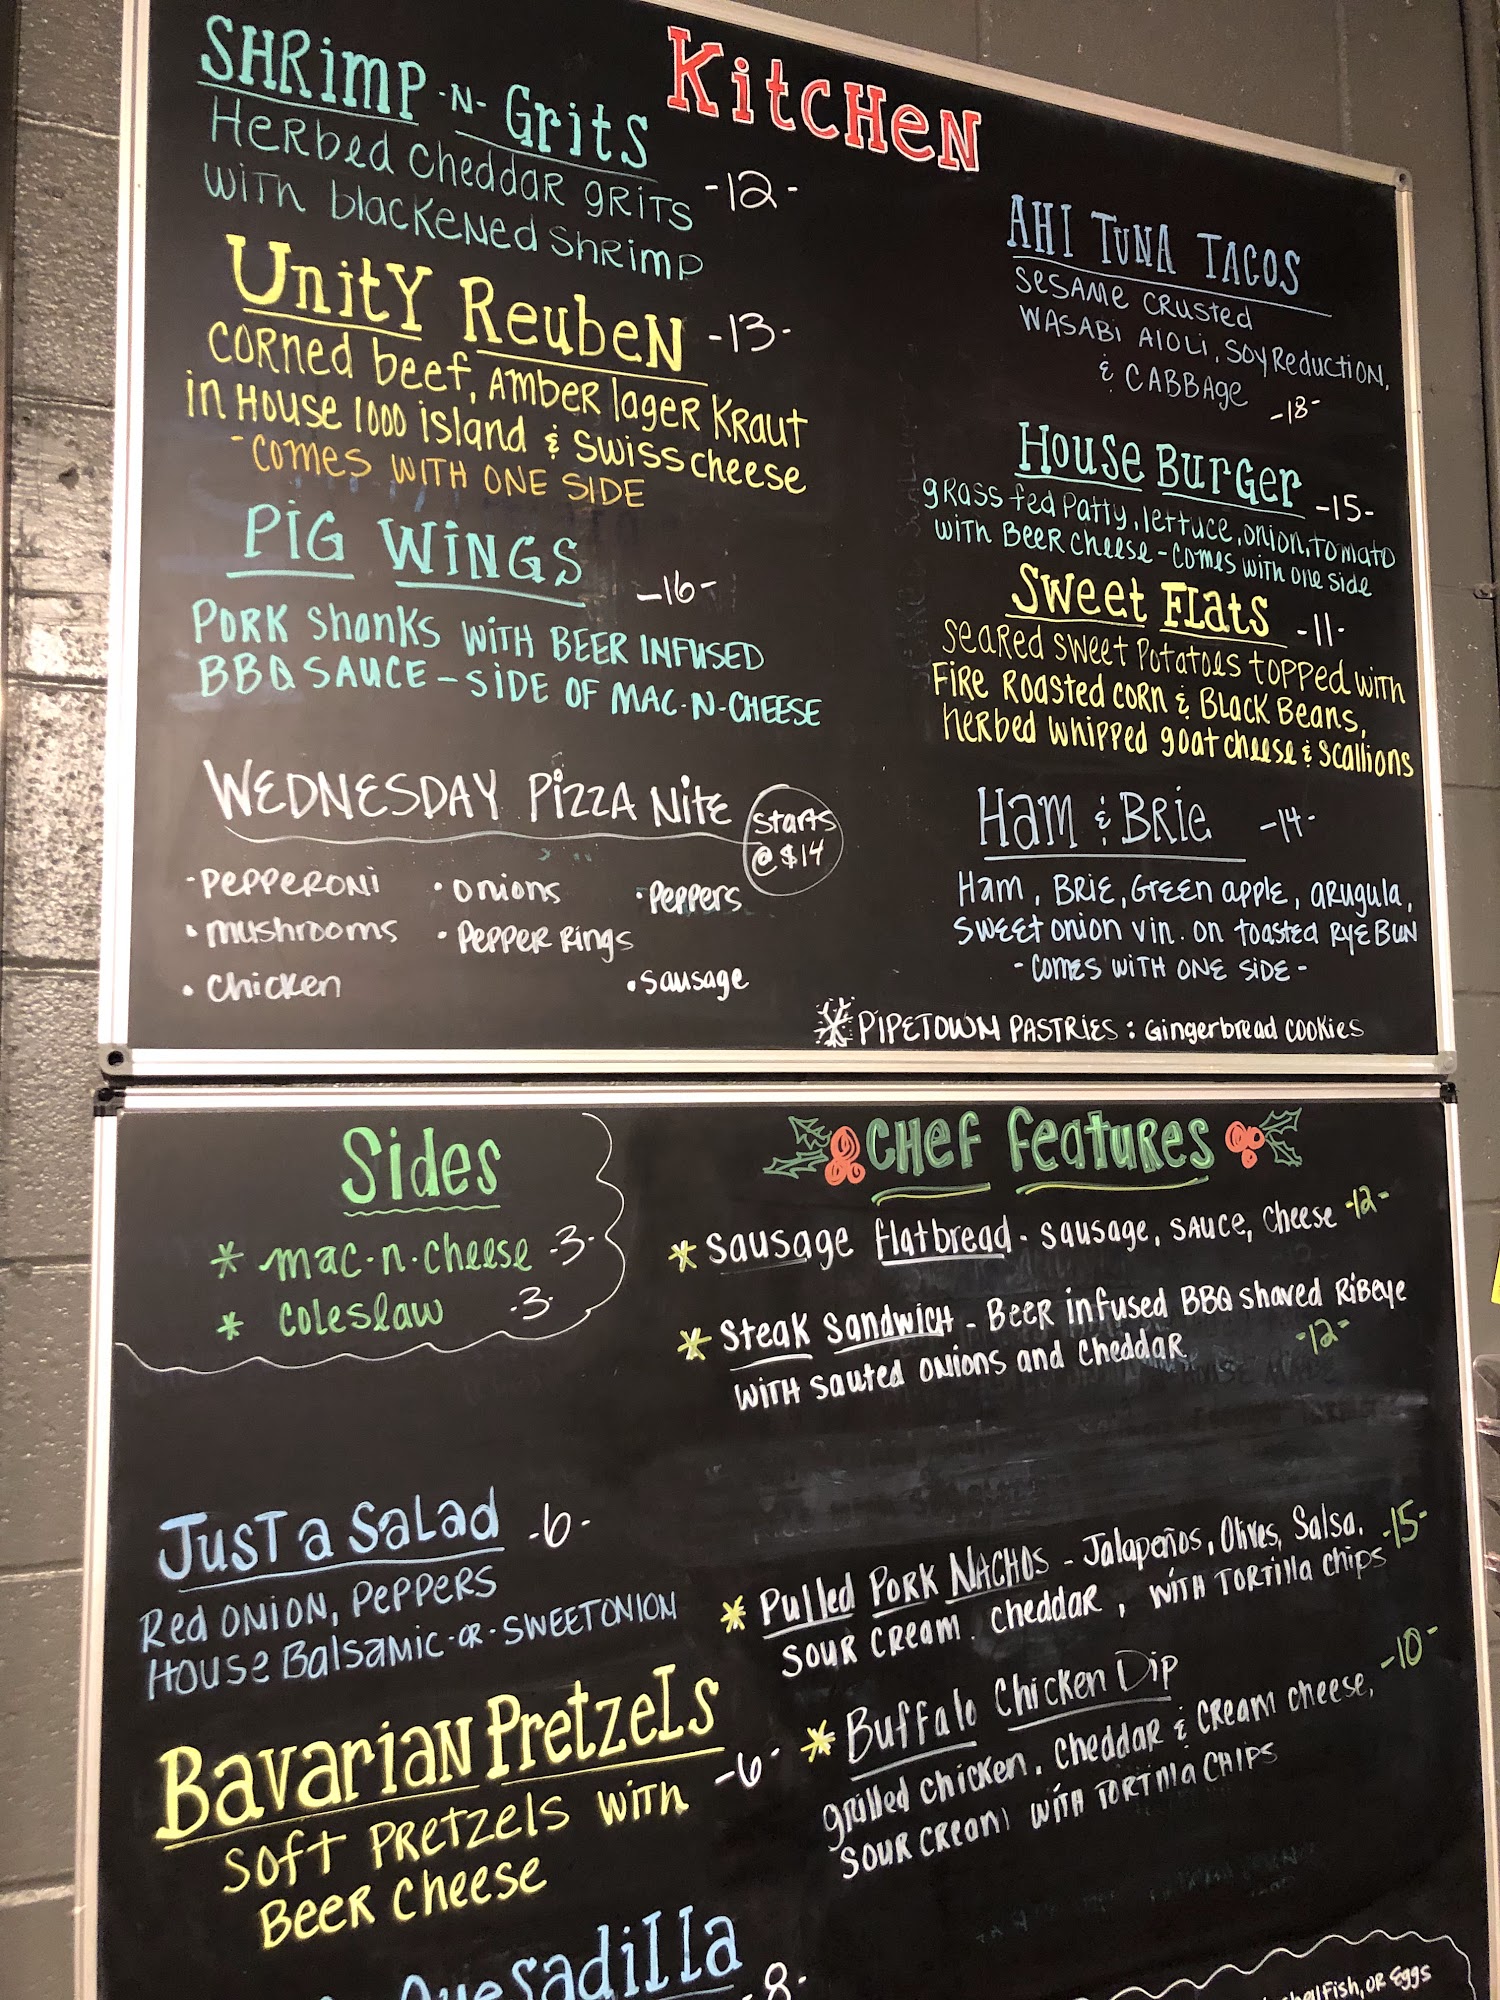 KitcHeN
SHRimP -N- GritS
HeRbed cheddaR gRiTS -12-
WiTH blacKeNed ShRimp
UnitY ReubeN -13-
CORned beef, AmbeR lageR KRaut
in House 1000 island & Swiss cheese
-comes WITH ONE SIDE
PiG WiNGS -16-
PORK Shanks WiTH BEER INFUSED
BBQ SAUCE - SIDE OF MAC-N-CHEESE
WEDNESDAY PiZZA NiTE
Starts
@ $14
- PEPPERONi
• onions
• Peppers
• mushrooms
• PEPPER Rings
• chicken
• sausage
AHI TUNA TACOS
SESAME CRUSTED
WASABI AIOLI, SOY Reduction,
& CABBAge -18-
House BurGer -15-
gRass fed Patty, lettuce, onion, Tomato
with BeeR cheese - comes with one side
Sweet Flats -11-
SeaRed Sweet Potatoes topped with
FiRe Roasted coRn & Black Beans,
HeRbed whipped goat cheese & Scallions
Ham & BRie -14-
Ham, BRie, Green apple, aRugula,
SWEET onion vin. on toasted RyE BUN
- Comes WITH ONE SiDE -
PIPETOWN PASTRiES: Gingerbread cookies
Sides
* mac-n-cheese -3-
* coleslaw -3-
CHeF FeatuRes
* Sausage flatbread - sausage, SAUCE, Cheese -12-
* Steak Sandwich - BeeR infused BBQ shaved Ribeye
WITH sauted onions and cheddar -12-
JusT a SaLad -6-
Red ONION, PePPeRS
House Balsamic -OR- SWEETONION
Bavarian PretzeLs -6-
SOFT PRetzels with
BeeR cheese
Quesadilla
-8-
* Pulled PoRK NACHOS - Jalapeños, Olives, Salsa, -15-
SOUR CREAM, CheddaR, WITH TORTilla chips
* Buffalo Chicken Dip -10-
grilled chicken, cheddaR & cream cheese,
SOUR CREAM WITH TORTilla CHIPS
shellFish, OR Eggs